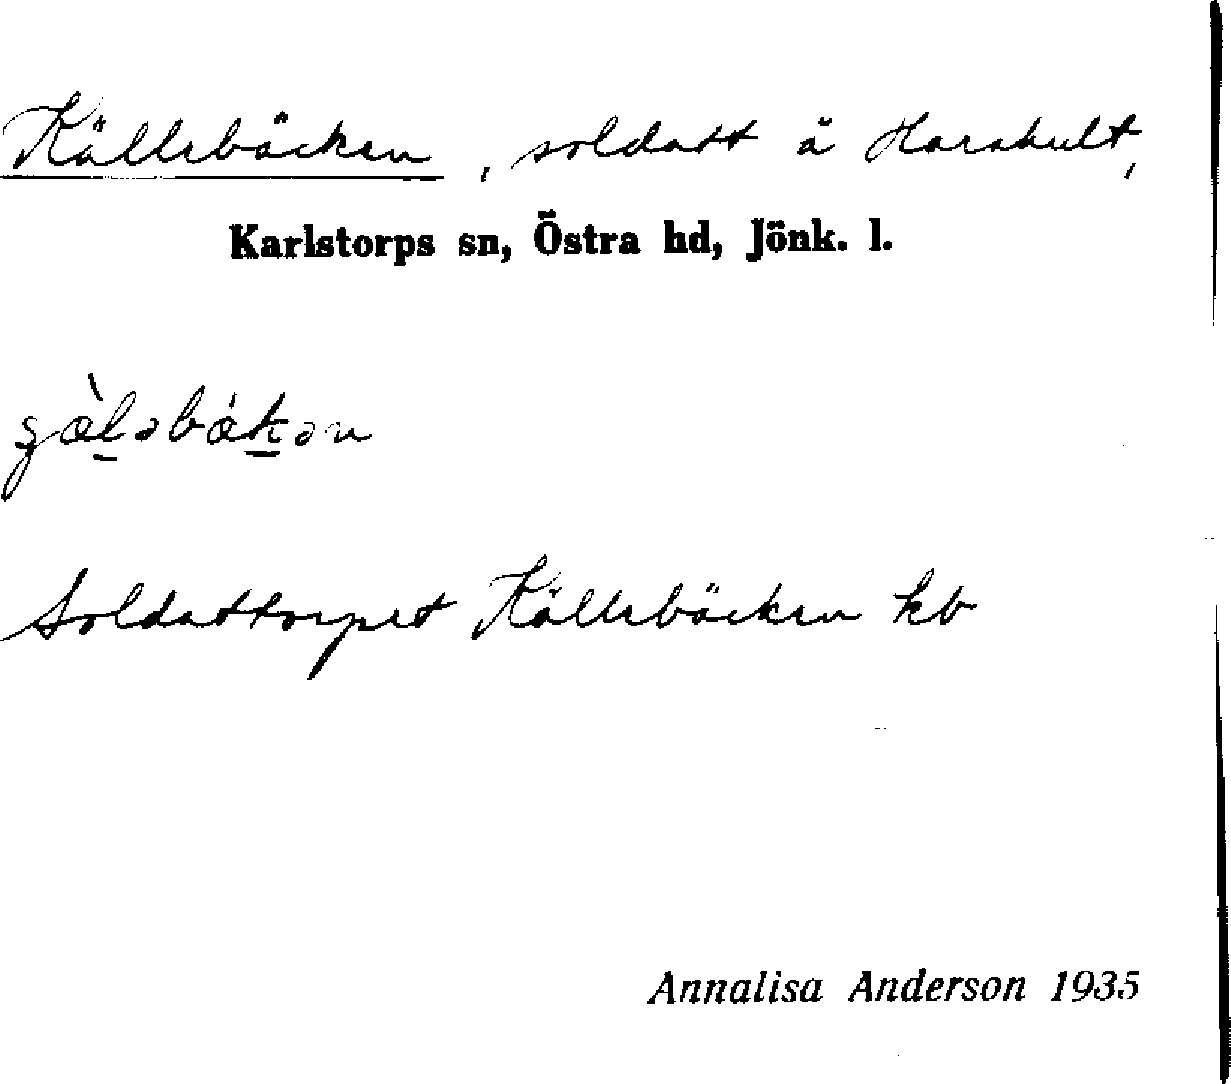 Källebäcken, soldatt å Harahult,
Karlstorps sn, Östra hd, Jönk. l.
Soldattorpet Källebäcken kb
Annalisa Anderson 1935